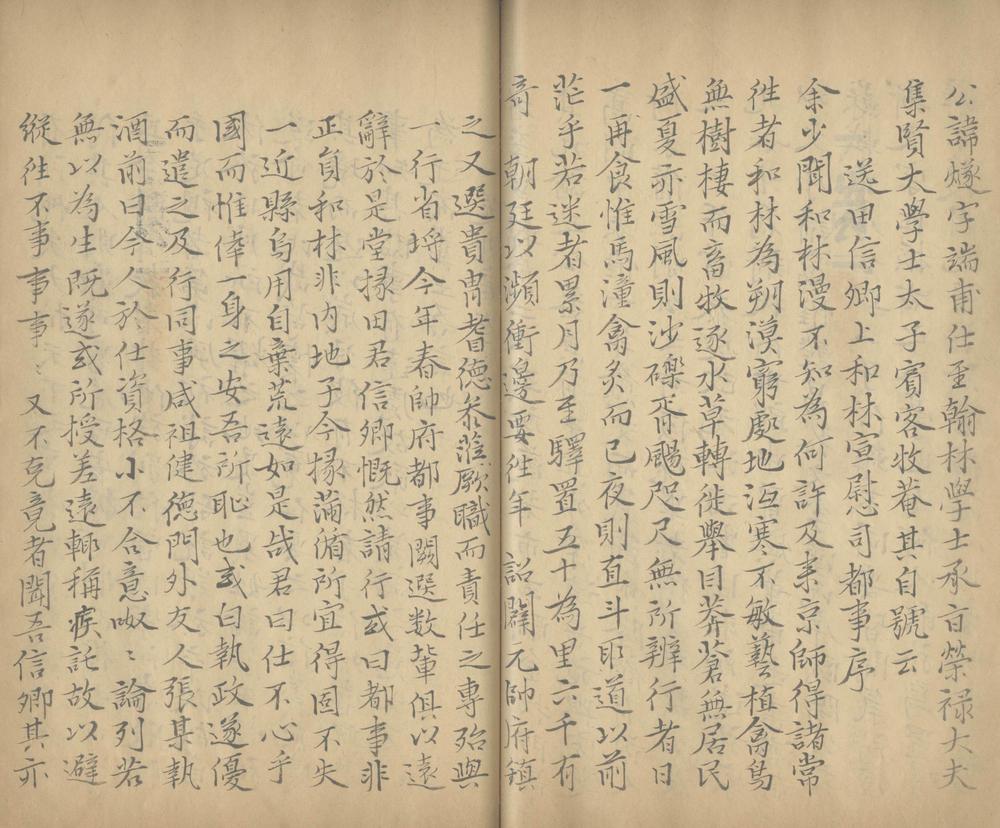 公諱燧字端甫仕至翰林學士承旨榮禄大夫
集賢大學士太子賓客牧菴其自號云
送田信卿上和林宣慰司都事序
余少聞和林漫不知為何許及来京師得諸常
徃者和林為朔漠窮處地沍寒不敏藝植禽鳥
無樹棲而畜牧逐水草轉徙舉目莽蒼無居民
盛夏亦雪風則沙礫脊颺咫尺無所辨行者日
一再食惟馬湩禽炙而已夜則直斗取道以前
茫乎若迷者累月乃至驛置五十為里六千有
竒 朝廷以瀕衝邊要徃年 詔闢元帥府鎮
之又選貴胄耆德叅蒞厥職而責任之專殆與
一行省埒今年春帥府都事闕選数軰俱以遠
辭於是堂掾田君信卿慨然請行或曰都事非
正員和林非内地子今掾蒲循所宜得固不失
一近縣烏用自棄荒遠如是㦲君曰仕不心乎
國而惟倖一身之安吾所恥也或曰執政遂優
而遣之及行同事咸祖健德門外友人張某執
酒前曰今人於仕資格小不合意呶〻論列若
無以為生既遂或所授差遠輙稱疾託故以避
縦徃不事事事〻又不克竟者聞吾信卿其亦